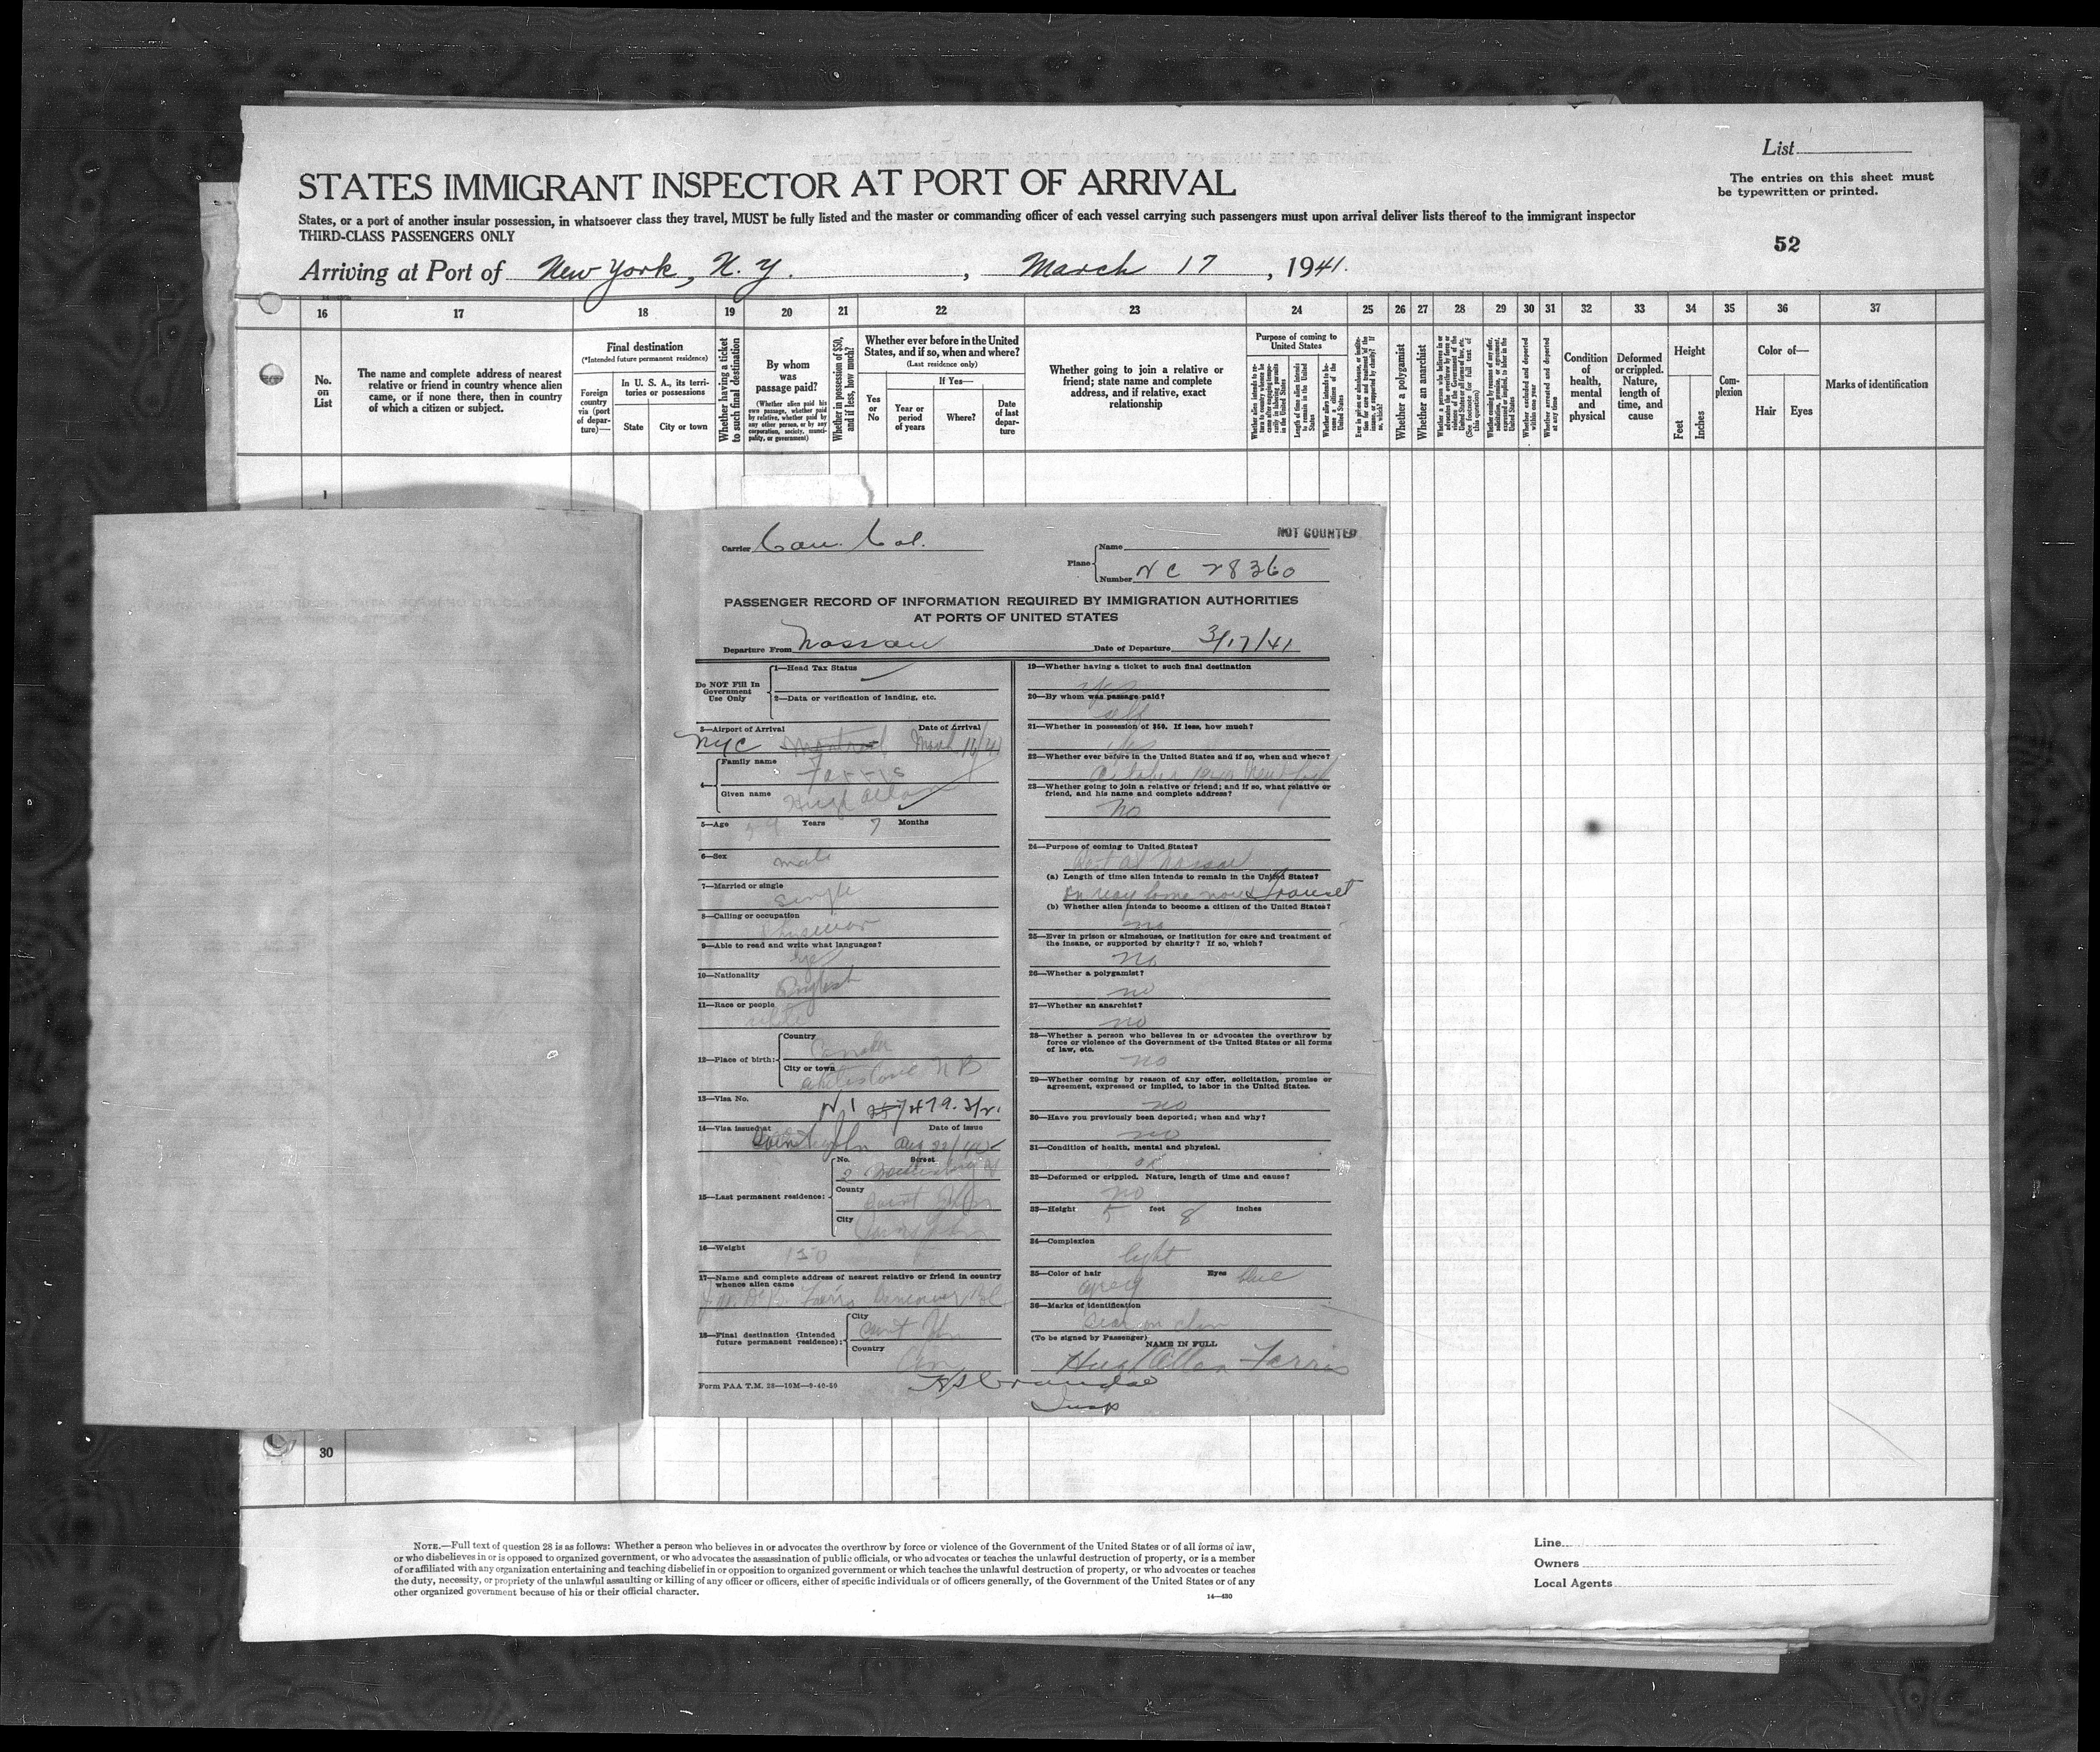 List
The entries on this sheet must
be typewritten or printed.
STATES IMMIGRANT INSPECTOR AT PORT OF ARRIVAL
States, or a port of another insular possession, in whatsoever class they travel, MUST be fully listed and the master or commanding officer of each vessel carrying such passengers must upon arrival deliver lists thereof to the immigrant inspector
THIRD-CLASS PASSENGERS ONLY
52
Arriving at Port of New York, N. Y. , March 17 , 1941.
16 17 18 19 20 21 22 23 24 25 26 27 28 29 30 31 32 33 34 35 36 37
No.
on
List
The name and complete address of nearest
relative or friend in country whence alien
came, or if none there, then in country
of which a citizen or subject.
Final destination
(*Intended future permanent residence)
Foreign
country
via (port
of depar-
ture)—
In U. S. A., its terri-
tories or possessions
State
City or town
Whether having a ticket
to such final destination
By whom
was
passage paid?
(Whether alien paid his
own passage, whether paid
by relative, whether paid by
any other person, or by any
corporation, society, munici-
pality, or government)
Whether in possession of $50,
and if less, how much?
Whether ever before in the United
States, and if so, when and where?
(Last residence only)
If Yes—
Yes
or
No
Year or
period
of years
Where?
Date
of last
depar-
ture
Whether going to join a relative or
friend; state name and complete
address, and if relative, exact
relationship
Purpose of coming to
United States
Length of time alien intends
to remain in the United
States
Whether a polygamist
Whether an anarchist
Whether excluded and deported
within one year
Whether arrested and deported
at any time
Condition
of
health,
mental
and
physical
Deformed
or crippled.
Nature,
length of
time, and
cause
Height
Feet
Inches
Com-
plexion
Color of—
Hair
Eyes
Marks of identification
1
NOT COUNTED
Carrier
Plane
Name
Number NC 28360
PASSENGER RECORD OF INFORMATION REQUIRED BY IMMIGRATION AUTHORITIES
AT PORTS OF UNITED STATES
Departure From Nassau Date of Departure 3/17/41
Do NOT Fill In
Government
Use Only
1—Head Tax Status
2—Data or verification of landing, etc.
3—Airport of Arrival Date of Arrival
NYC Montreal
4— Family name Farris
Given name Hugh Allan
5—Age Years 7 Months
6—Sex male
7—Married or single single
8—Calling or occupation
9—Able to read and write what languages?
yes
10—Nationality English
11—Race or people
12—Place of birth: Country Canada
City or town N B
13—Visa No.
14—Visa issued at Date of issue
Saint John Aug
15—Last permanent residence: No. Street
2
County Saint John
City Saint John
16—Weight 150
17—Name and complete address of nearest relative or friend in country
whence alien came
Farris Vancouver B.C.
18—Final destination (Intended
future permanent residence): City Saint John
Country Can
Form PAA T.M. 28—10M—9-40-50
19—Whether having a ticket to such final destination
yes
20—By whom was passage paid?
self
21—Whether in possession of $50. If less, how much?
yes
22—Whether ever before in the United States and if so, when and where?
October 1940 New York
23—Whether going to join a relative or friend; and if so, what relative or
friend, and his name and complete address?
No
24—Purpose of coming to United States?
Rest at Nassau
(a) Length of time alien intends to remain in the United States?
on way home now transit
(b) Whether alien intends to become a citizen of the United States?
no
25—Ever in prison or almshouse, or institution for care and treatment of
the insane, or supported by charity? If so, which?
No
26—Whether a polygamist?
no
27—Whether an anarchist?
no
28—Whether a person who believes in or advocates the overthrow by
force or violence of the Government of the United States or all forms
of law, etc.
no
29—Whether coming by reason of any offer, solicitation, promise or
agreement, expressed or implied, to labor in the United States.
no
30—Have you previously been deported; when and why?
no
31—Condition of health, mental and physical.
OK
32—Deformed or crippled. Nature, length of time and cause?
no
33—Height 5 feet 8 inches
34—Complexion
light
35—Color of hair Eyes
grey blue
36—Marks of identification
scar on chin
(To be signed by Passenger)
NAME IN FULL
Hugh Allan Farris
Insp
30
NOTE.—Full text of question 28 is as follows: Whether a person who believes in or advocates the overthrow by force or violence of the Government of the United States or of all forms of law,
or who disbelieves in or is opposed to organized government, or who advocates the assassination of public officials, or who advocates or teaches the unlawful destruction of property, or is a member
of or affiliated with any organization entertaining and teaching disbelief in or opposition to organized government or which teaches the unlawful destruction of property, or who advocates or teaches
the duty, necessity, or propriety of the unlawful assaulting or killing of any officer or officers, either of specific individuals or of officers generally, of the Government of the United States or of any
other organized government because of his or their official character.
14—430
Line
Owners
Local Agents